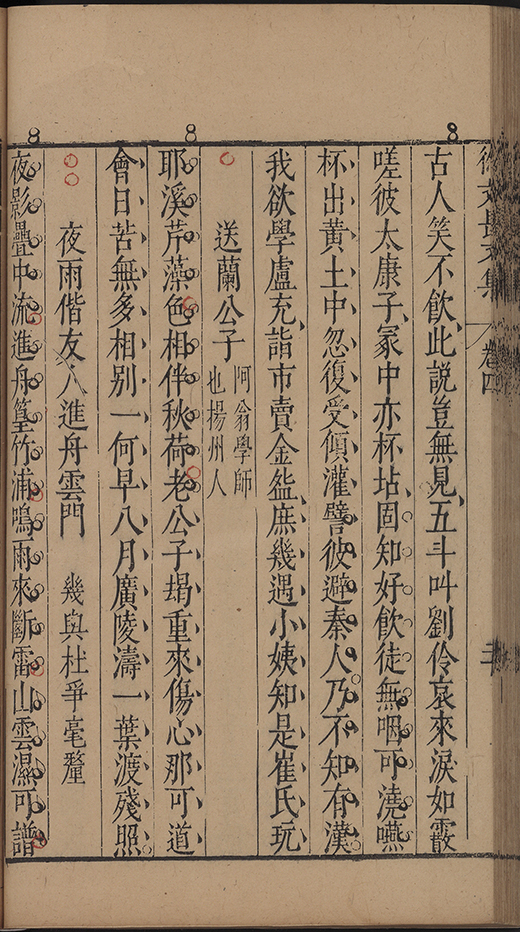 徐文長文集 卷四
古人笑不飲此説豈無見五斗叫劉伶哀來淚如霰
嗟彼太康子冢中亦杯坫固知好飲徒無咽可澆嚥
杯出黃土中忽復受傾灌譬彼避秦人乃不知有漢
我欲學盧充詣市賣金盌庶幾遇小姨知是崔氏玩
送蘭公子 阿翁學師
也揚州人
耶溪芹藻色相伴秋荷老公子朅重來傷心那可道
會日苦無多相别一何早八月廣陵濤一葉渡殘照
夜雨偕友人進舟雲門 幾與杜爭毫釐
夜影疊中流進舟篁竹浦鳴雨來斷雷山雲濕可譜
8
8
8